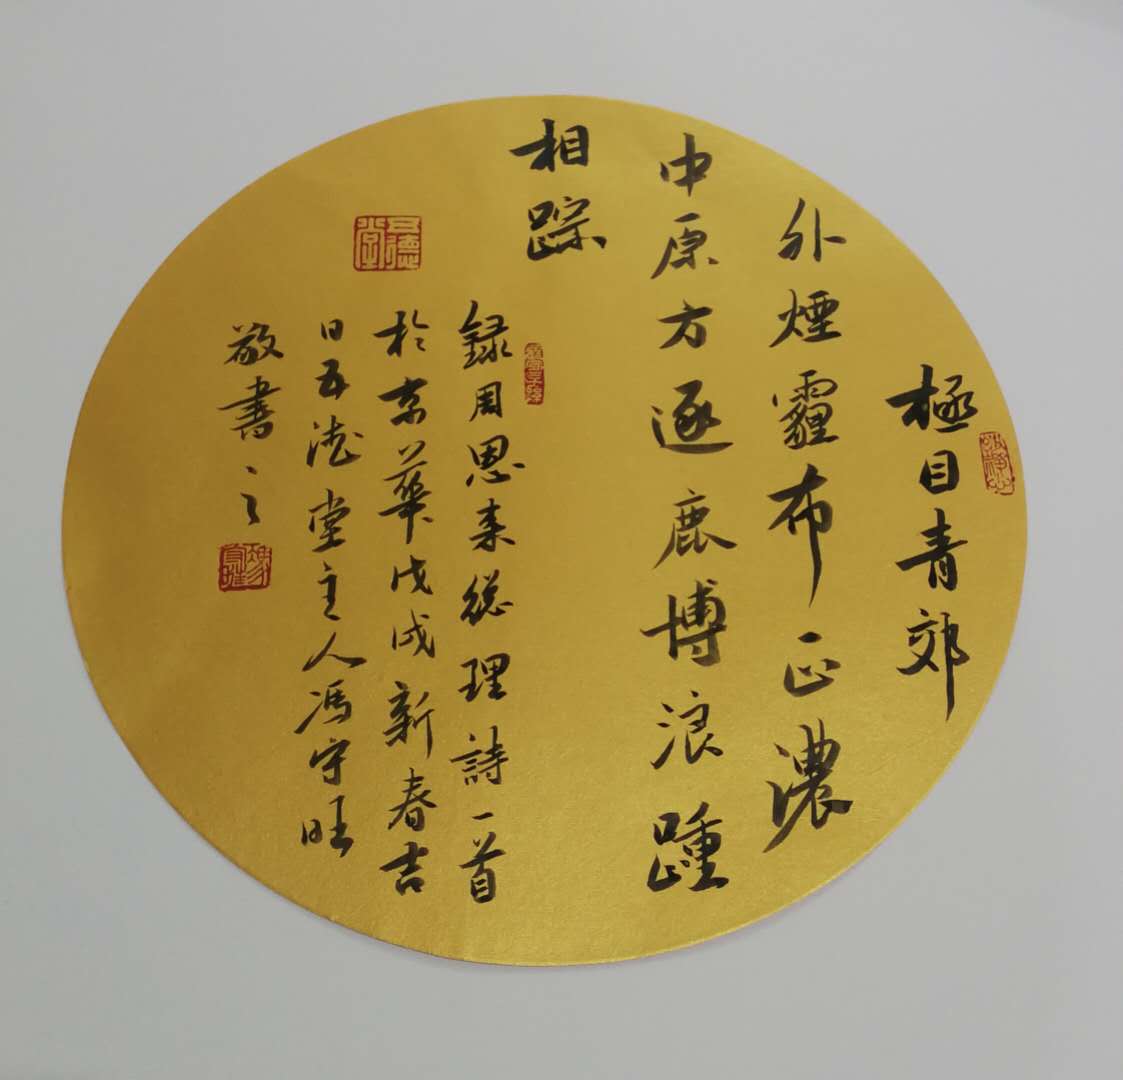 極目青郊
外煙霾布正濃
中原方逐鹿博浪踵
相踪
録周恩来総理詩一首
於京華戊戌新春吉
日五德堂主人馮守旺
敬書之
五德堂